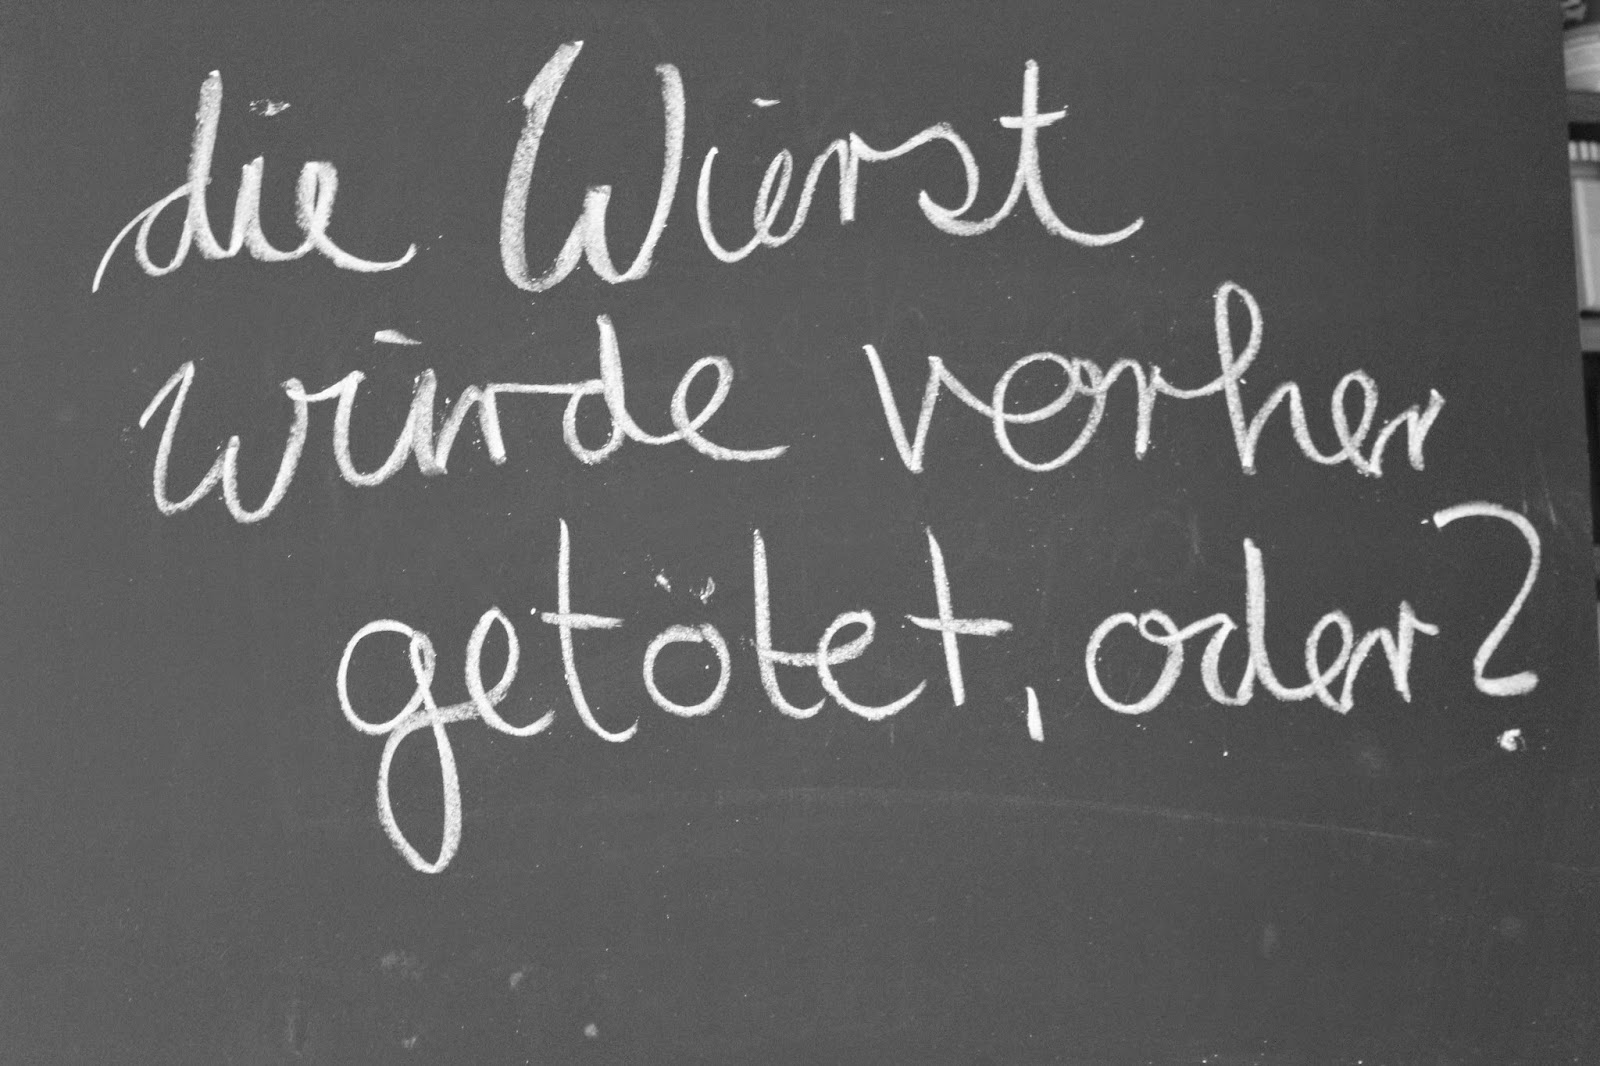 die Wurst
wurde vorher
getötet, oder?